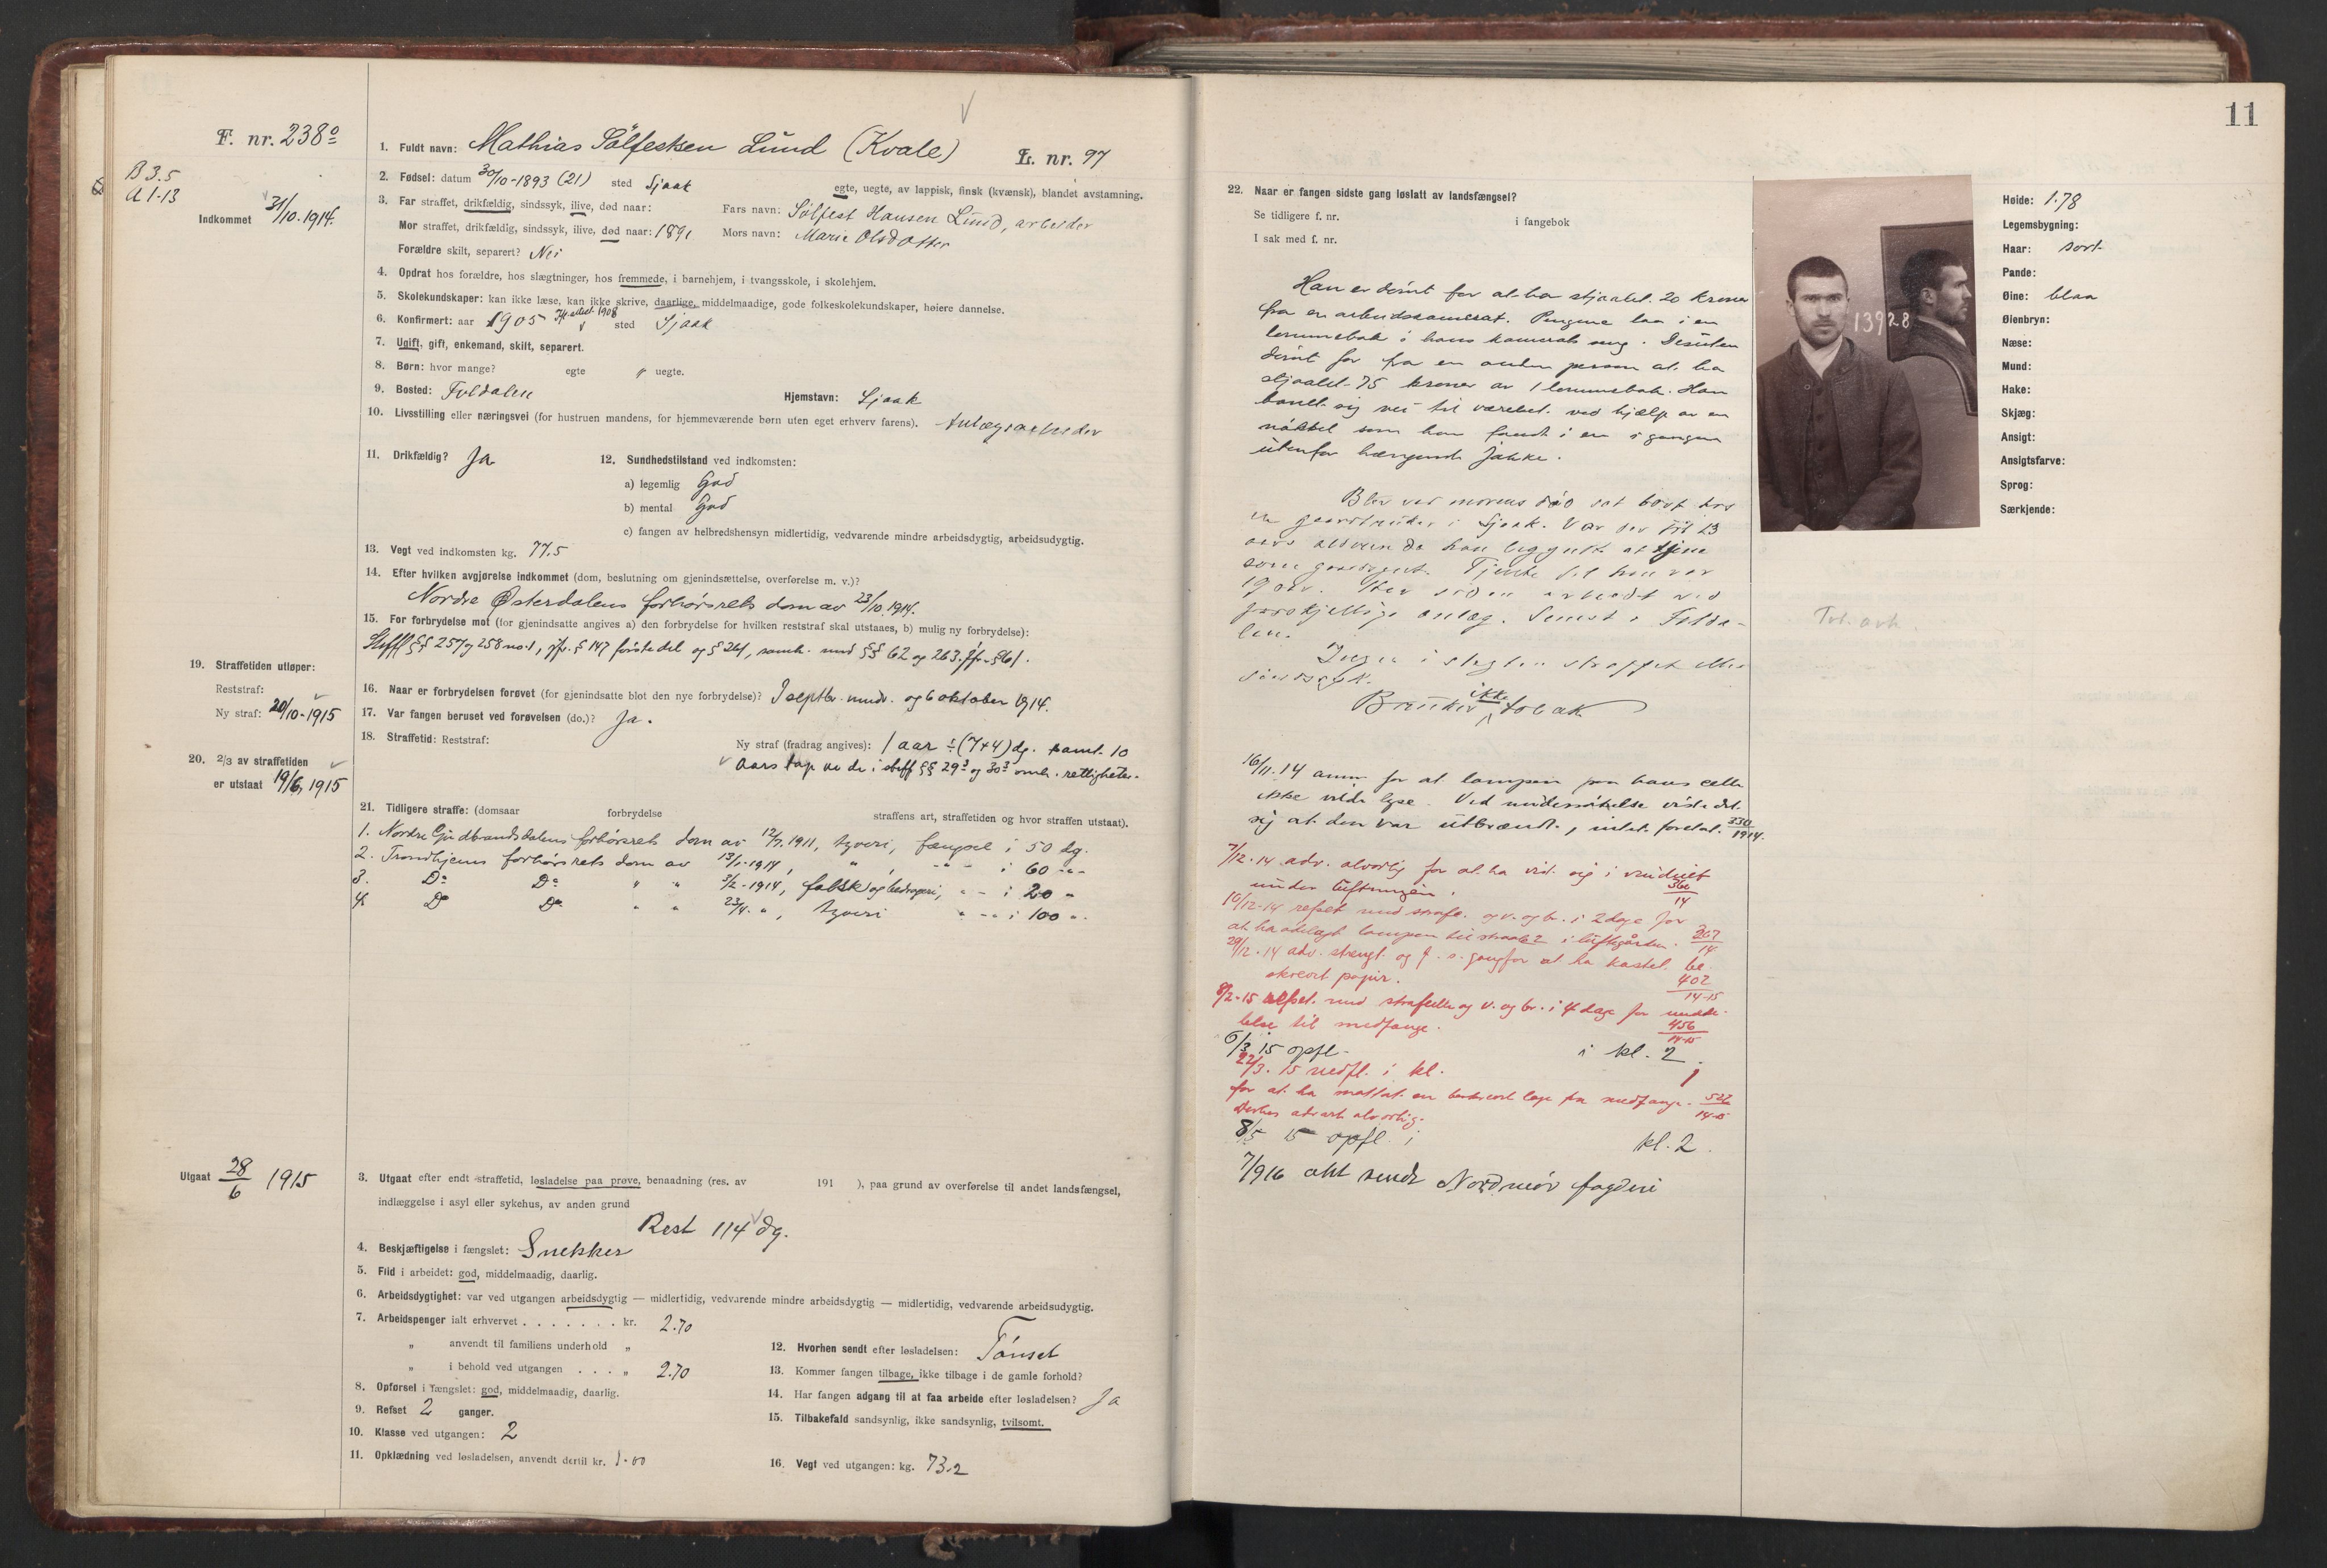 F. nr. 238⁰
B 3.5
A 1-13
Indkommet 31/10. 1914.
19. Straffetiden utløper:
Reststraf:
Ny straf: 20/10-1915
20. 2/3 av straffetiden
er utstaat 19/6, 1915
Utgaat 28/6 1915
1. Fuldt navn: Mathias Sølfestsen Lund (Kvale) L. nr. 97
2. Fødsel: datum 30/10-1893 (21) sted Sjaak egte, uegte, av lappisk, finsk (kvænsk), blandet avstamning.
3. Far straffet, drikfældig, sindssyk, ilive, død naar: Fars navn: Sølfest Hansen Lund, arbeider
Mor straffet, drikfældig, sindssyk, ilive, død naar: 1891 Mors navn: Marie Olsdotter
Forældre skilt, separert? Nei
4. Opdrat hos forældre, hos slægtninger, hos fremmede, i barnehjem, i tvangsskole, i skolehjem.
5. Skolekundskaper: kan ikke læse, kan ikke skrive, daarlige, middelmaadige, gode folkeskolekundskaper, høiere dannelse.
6. Konfirmert: aar 1905 1908 sted Sjaak
7. Ugift, gift, enkemand, skilt, separert.
8. Børn: hvor mange? egte " uegte.
9. Bosted: Foldalen Hjemstavn: Sjaak
10. Livsstilling eller næringsvei (for hustruen mandens, for hjemmeværende børn uten eget erhverv farens). Anlægsarbeider
11. Drikfældig? Ja 12. Sundhedstilstand ved indkomsten:
a) legemlig God
b) mental God
c) fangen av helbredshensyn midlertidig, vedvarende mindre arbeidsdygtig, arbeidsudygtig.
13. Vegt ved indkomsten kg. 77,5
14. Efter hvilken avgjørelse indkommet (dom, beslutning om gjenindsættelse, overførelse m. v.)?
Nordre Østerdalens forhørsrets dom av 23/10 1914.
15. For forbrydelse mot (for gjenindsatte angives a) den forbrydelse for hvilken reststraf skal utstaaes, b) mulig ny forbrydelse):
Stffl §§ 257 og 258 no. 1, jfr. § 147 første del og § 261, samh. med §§ 62 og 263. jfr. § 61.
16. Naar er forbrydelsen forøvet (for gjenindsatte blot den nye forbrydelse)? I septbr. mnd. og 6 oktober 1914.
17. Var fangen beruset ved forøvelsen (do.)? Ja.
18. Straffetid: Reststraf: Ny straf (fradrag angives): 1 aar ÷ (7+4) dg. samt 10
aars tap av de i stffl §§ 29³ og 30³ omh. rettigheter.
21. Tidligere straffe: (domsaar forbrydelse straffens art, straffetiden og hvor straffen utstaat).
1. Nordre Gudbrandsdalens forhørsrets dom av 12/7. 1911, tyveri, fængsel i 50 dg.
2. Trondhjems forhørsrets dom av 13/1-1914, " , " - i 60 "-
3. Do Do " " 3/2-1914, falsk og bedrageri, " - i 20 "
4. Do Do " " 23/4. " , tyveri " - " i 100 ".
3. Utgaat efter endt straffetid, løsladelse paa prøve, benaadning (res. av 191 ), paa grund av overførelse til andet landsfængsel,
indlæggelse i asyl eller sykehus, av anden grund
Rest 114 dg.
4. Beskjæftigelse i fængslet: Snekker
5. Flid i arbeidet: god, middelmaadig, daarlig.
6. Arbeidsdygtighet: var ved utgangen arbeidsdygtig — midlertidig, vedvarende mindre arbeidsdygtig — midlertidig, vedvarende arbeidsudygtig.
7. Arbeidspenger ialt erhvervet . . . . . . . kr. 2.70
" anvendt til familiens underhold "
" i behold ved utgangen . . . . " 2.70
8. Opførsel i fængslet: god, middelmaadig, daarlig.
9. Refset 2 ganger.
10. Klasse ved utgangen: 2
11. Opklædning ved løsladelsen, anvendt dertil kr. 1.00
12. Hvorhen sendt efter løsladelsen: Tønset
13. Kommer fangen tilbage, ikke tilbage i de gamle forhold?
14. Har fangen adgang til at faa arbeide efter løsladelsen? Ja
15. Tilbakefald sandsynlig, ikke sandsynlig, tvilsomt.
16. Vegt ved utgangen: kg. 73.2
11
22. Naar er fangen sidste gang løslatt av landsfængsel?
Se tidligere f. nr. i fangebok
I sak med f. nr.
Han er dømt for at ha stjaalet 20 kroner
fra en arbeidskamerat. Pengene laa i en
lommebok i hans kamerats seng. Desuten
dømt for fra en anden person at ha
stjaalet 75 kroner av 1 lommebok. Han
banet sig vei til værelset ved hjælp av en
nøkkel som han fandt i en i gangen
utenfor hængende jakke.
Blev ved morens død sat bort hos
en gaardbruker i Sjaak. Var der til 13
aars alderen da han begynte at tjene
som gjætergut. Tjente til han var
19 aar. Har siden arbeidet ved
forskjellige anlæg. Senest i Folda-
len.
Ingen i slegten straffet eller
sindssyk.
Bruker ikke tobak
16/11.14 anm. for at lampen paa hans celle
ikke vilde lyse. Ved undersøkelse viste det
sig at den var utbrændt, intet foretat. 330/1914.
7/12.14 adv. alvorlig for at ha vist sig i vinduet
under luftningen. 360/14
10/12-14 refset med strafc. og v. og br. i 2 dage for
at ha ødelagt lampen i luftegården. 367/14
29/12.14 adv. strengt og for at ha kastet be-
skrevet papir. 402/14-15
8/2-15 refset med strafcelle og v. og br. i 4 dage for medde-
lelse til medfange. 456/14-15
6/3 15 opfl. i kl. 2.
22/3. 15 nedfl. i kl. 1
for at ha mottat en beskrevet lap fra medfange. 527/14-15
Derhos advart alvorlig.
8/5 15 opfl. i kl. 2.
7/9 16 akt sendt Nordmør fogderi
13928
Høide: 1.78
Legemsbygning:
Haar: sort
Pande:
Øine: blaa
Øienbryn:
Næse:
Mund:
Hake:
Skjæg:
Ansigt:
Ansigtsfarve:
Sprog:
Særkjende: